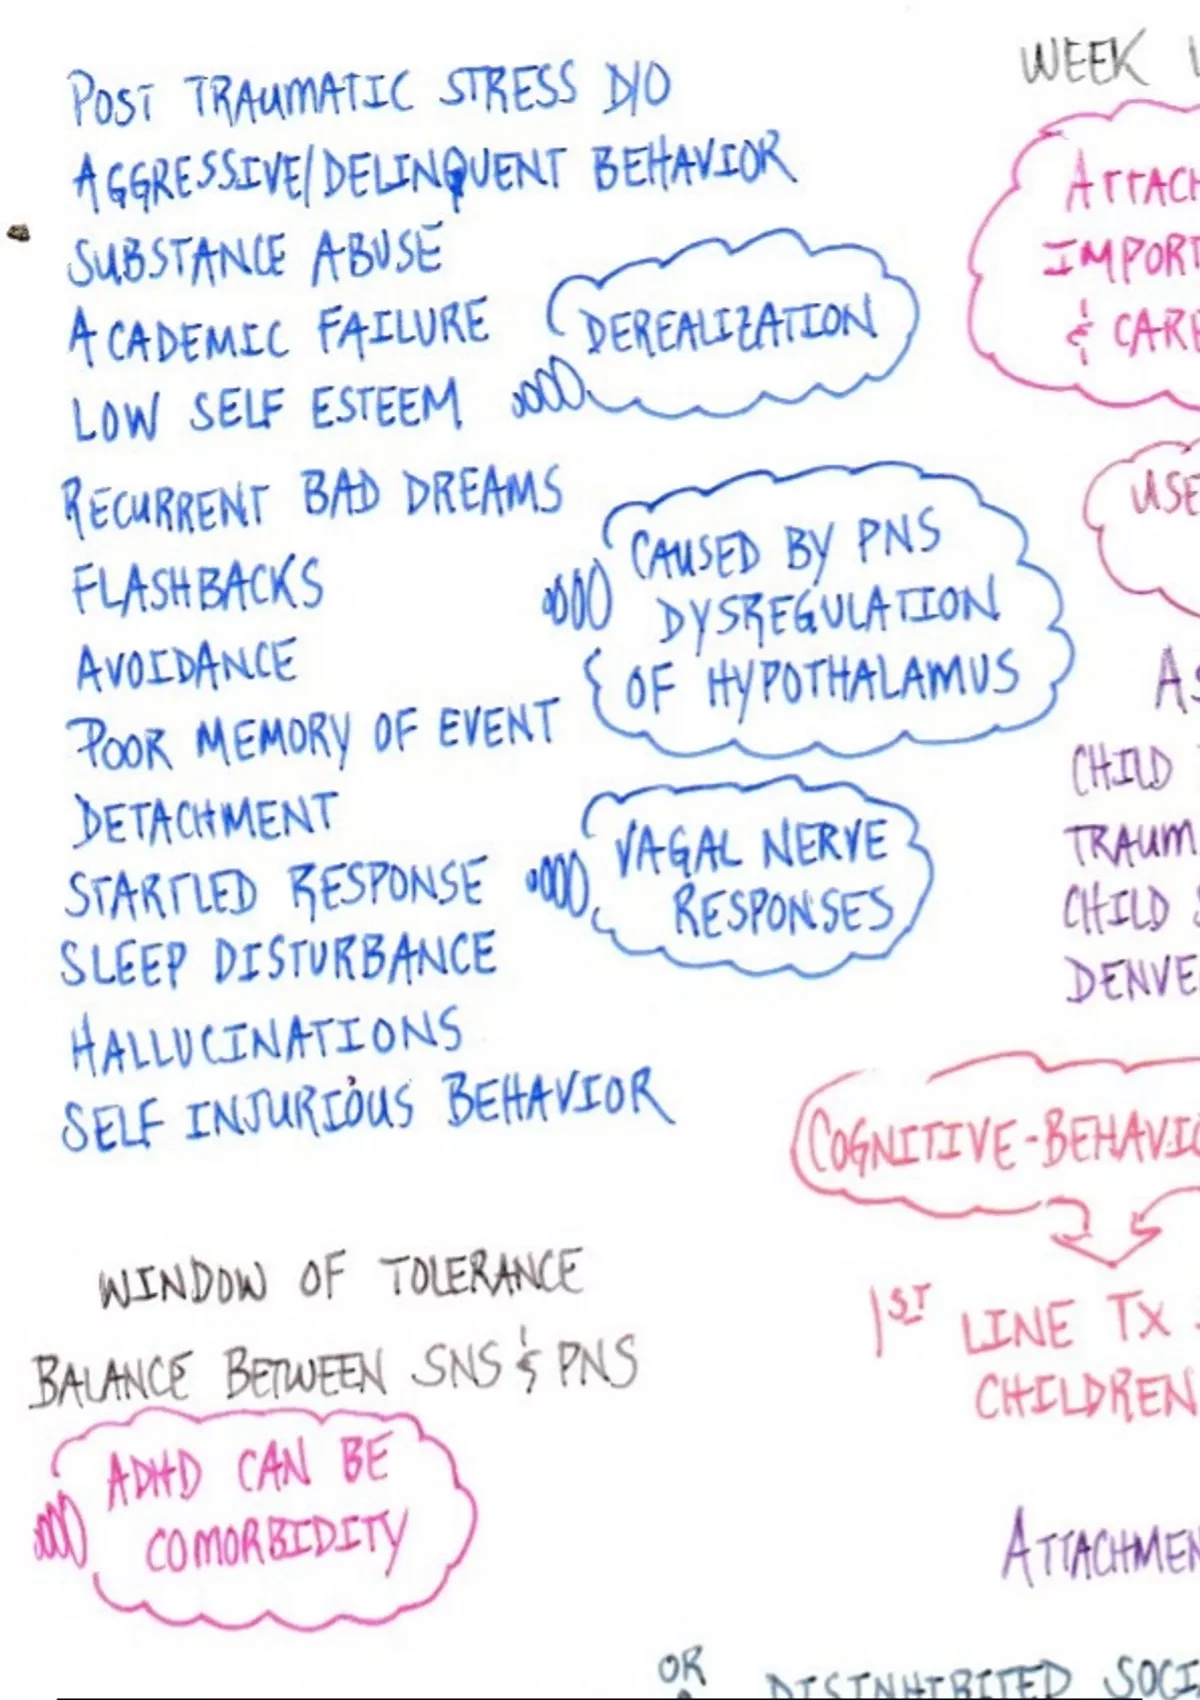 POST TRAUMATIC STRESS D/O
AGGRESSIVE/DELINQUENT BEHAVIOR
SUBSTANCE ABUSE
ACADEMIC FAILURE
LOW SELF ESTEEM
DEREALIZATION
RECURRENT BAD DREAMS
FLASHBACKS
AVOIDANCE
POOR MEMORY OF EVENT
CAUSED BY PNS
DYSREGULATION
OF HYPOTHALAMUS
DETACHMENT
STARTLED RESPONSE
SLEEP DISTURBANCE
HALLUCINATIONS
SELF INJURIOUS BEHAVIOR
VAGAL NERVE
RESPONSES
WINDOW OF TOLERANCE
BALANCE BETWEEN SNS & PNS
ADHD CAN BE
COMORBIDITY
WEEK
ATTACH
IMPORT
& CARE
USE
AS
CHILD
TRAUM
CHILD
DENVE
COGNITIVE-BEHAVIO
1ST LINE TX
CHILDREN
ATTACHMEN
OR
DISINHIBITED SOCI